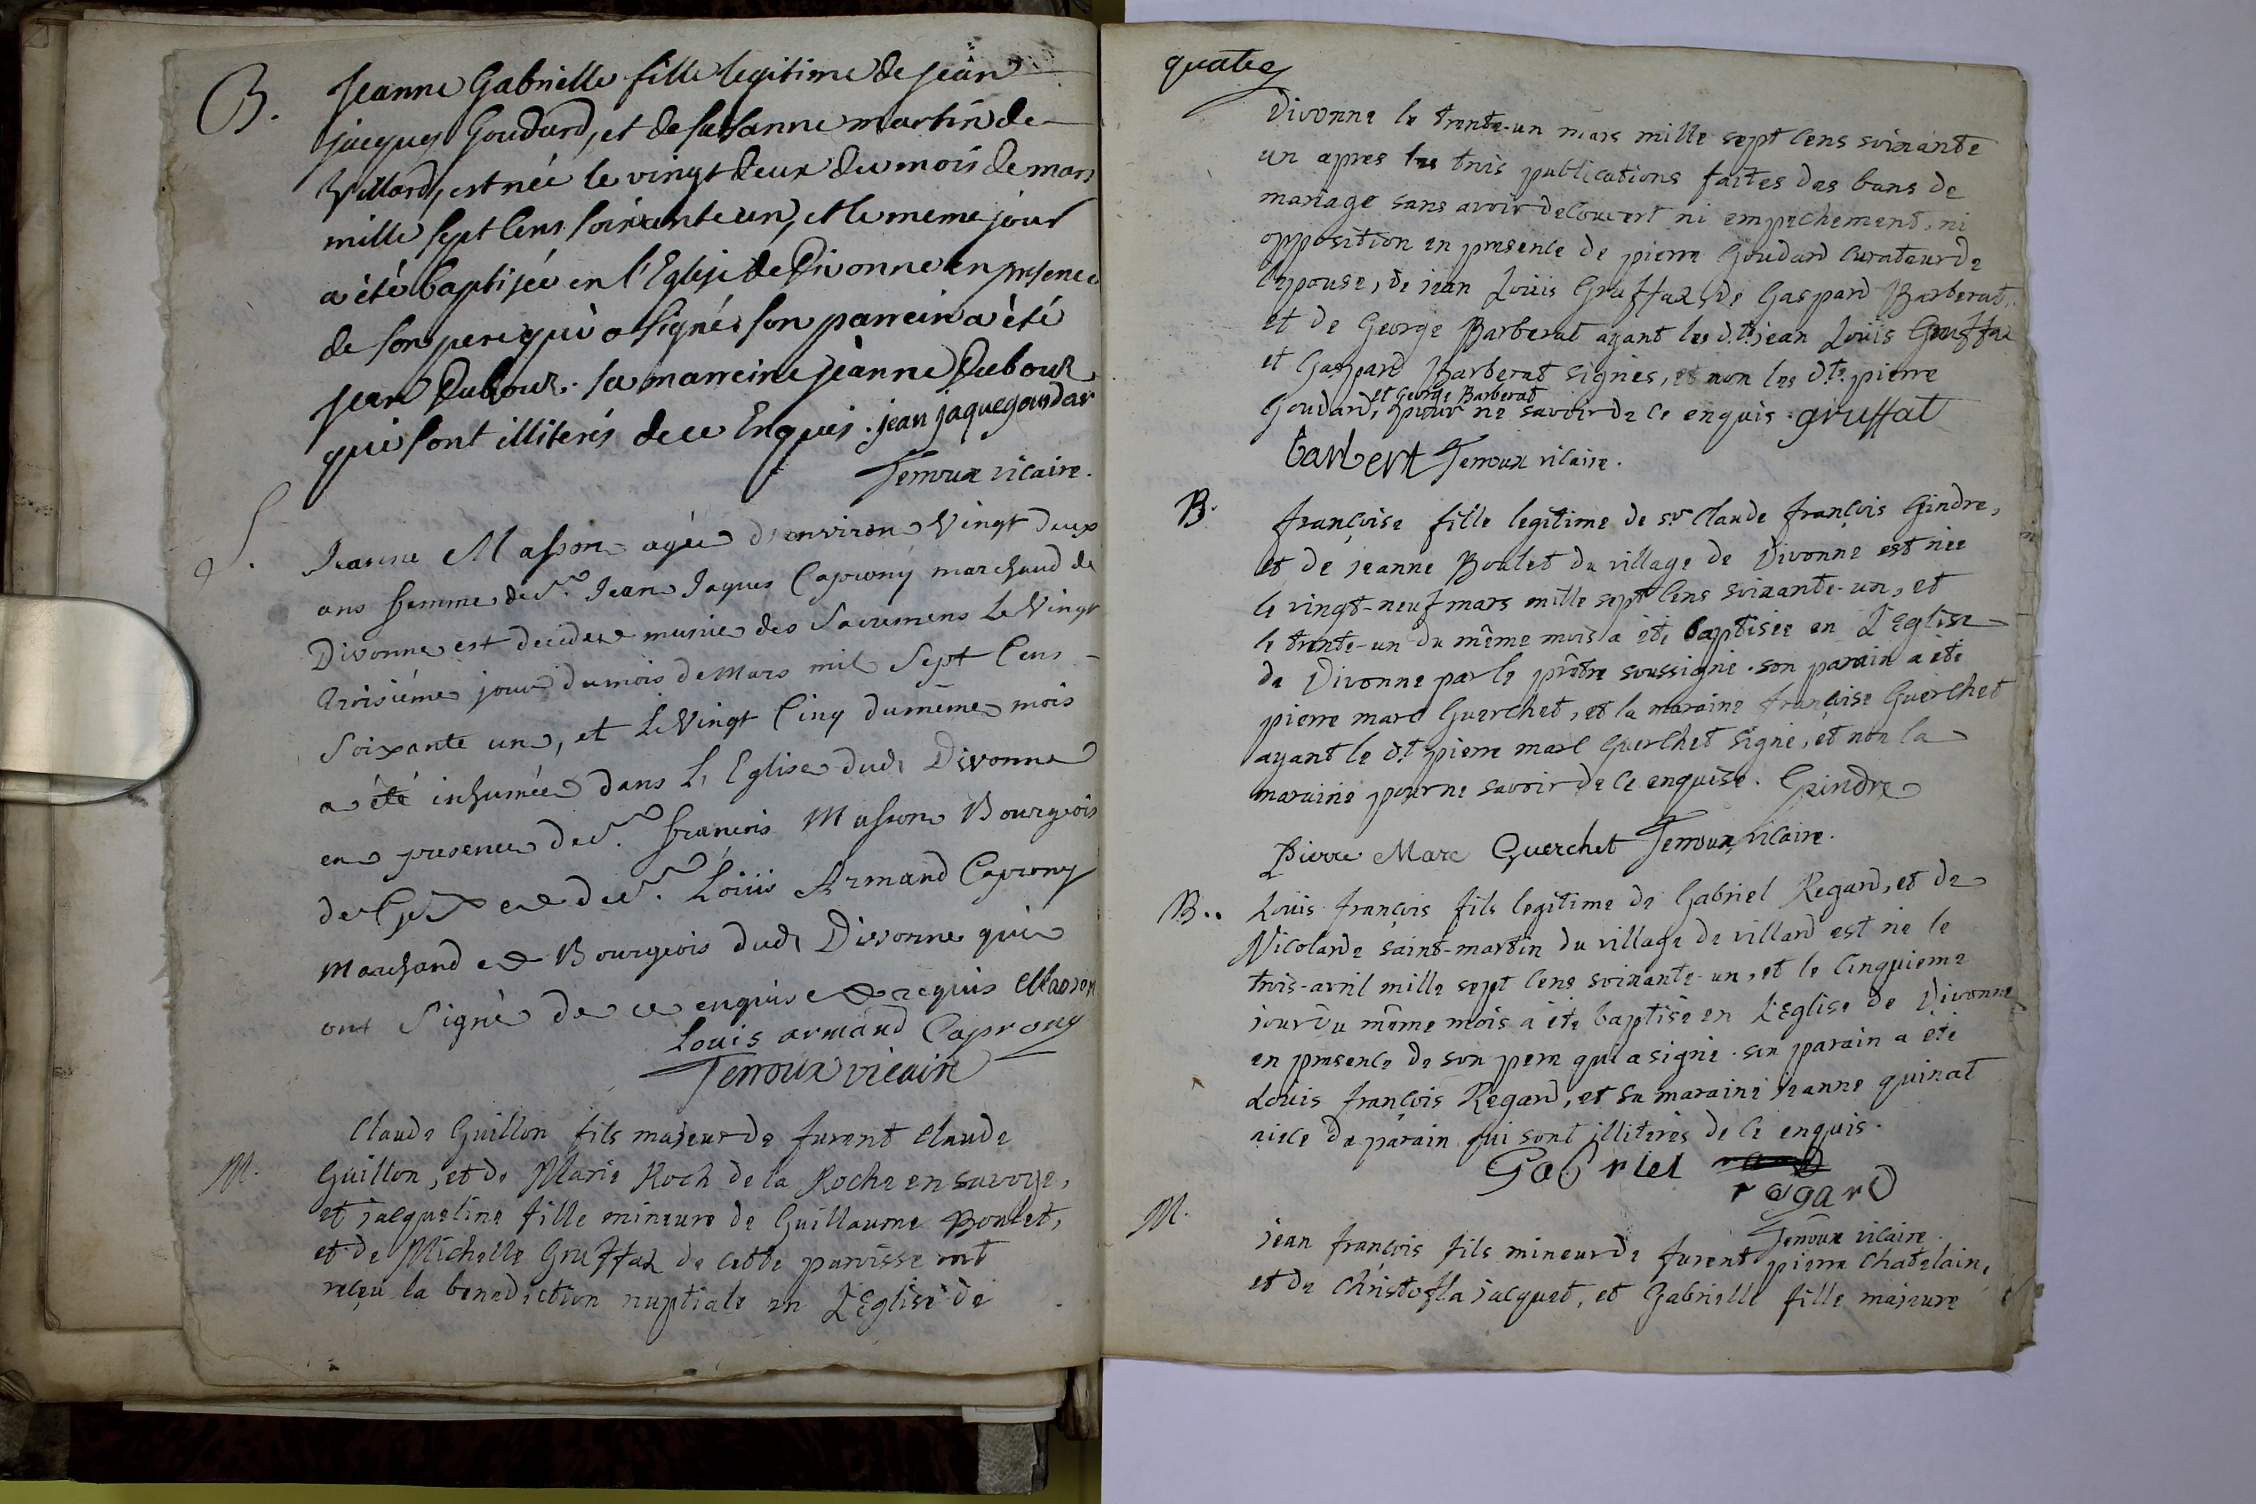 B. Jeanne Gabrielle fille legitime de jean
jacques Goudard, et de susanne martin de
Villard, est née le vingt deux du mois de mars
mille sept cens soixante un, et le meme jour
a été baptisée en l'Eglise de Divonne en presence
de son pere qui a signé. son parrein a été
jean Dubout. sa marreine jeanne Dubout
qui sont illiterés de ce Enquis. jean jaque goudar
Terroux vicaire.
S. Jeanne Masson agée d'environ vingt deux
ans femme de Sr. Jean Jaques Caprony marchand de
Divonne est decedée munie des Sacremens Le Vingt
troisiéme jour du mois de Mars mil Sept Cens
Soixante un, et Le Vingt Cinq du même mois
a été inhumée dans L'Eglise dudt Divonne
en presence de Sr. francois Masson Bourgeois
de Gex et de Sr. Loüis Armand Caprony
Marchand et Bourgeois dudt Divonne qui
ont Signé de ce enquis et requis Masson
Louis armand Caprony
Terroux vicaire
Claude Guillon fils majeur de furent Claude
M. Guillon, et de Marie Roch de la Roche en savoye,
et jacqueline fille mineure de Guillaume Boulet,
et de Michelle Gruffaz de cette parroisse ont
reçeu la benediction nuptiale en L'Eglise de
quatre
Divonne le trente-un mars mille sept cens soixante
un apres les trois publications faites des bans de
mariage sans avoir decouvert ni empechement, ni
opposition en presence de pierre Goudard curateur de
l'epouse, de jean Loüis Gruffaz, de Gaspard Barberat,
et de George Barberat ayant les dts. jean Loüis Gruffaz
et Gaspard Barberat signés, et non les dts. pierre
et George Barberat
Goudard, pour ne savoir de ce enquis. gruffat
barbert Terroux vicaire.
B. françoise fille legitime de sr. Claude françois Gindre,
et de jeanne Boulet du village de Divonne est née
le vingt-neuf mars mille sept cens soixante-un, et
le trente-un du même mois a été baptisée en L'Eglise
de Divonne par le prêtre soussigné. son parain a été
pierre marc Guerchet, et la maraine françoise Guerchet
ayant le dt. pierre marc Guerchet signé, et non la
maraine pour ne savoir de ce enquise. Gindre
Pierre Marc Guerchet Terroux, vicaire.
B.. Louis françois fils legitime de Gabriel Regard, et de
Nicolarde saint-martin du village de villard est né le
trois-avril mille sept cens soixante-un, et le cinquieme
jour du même mois a été baptisé en L'Eglise de Divonne
en presence de son pere qui a signé. son parain a été
Loüis françois Regard, et sa maraine jeanne quinat
niece du parain qui sont illiterés de ce enquis.
Gabriel
regard
Terroux vicaire.
M. jean françois fils mineur de furent pierre Chatelain,
et de Christofla jacquet, et Gabrielle fille majeure